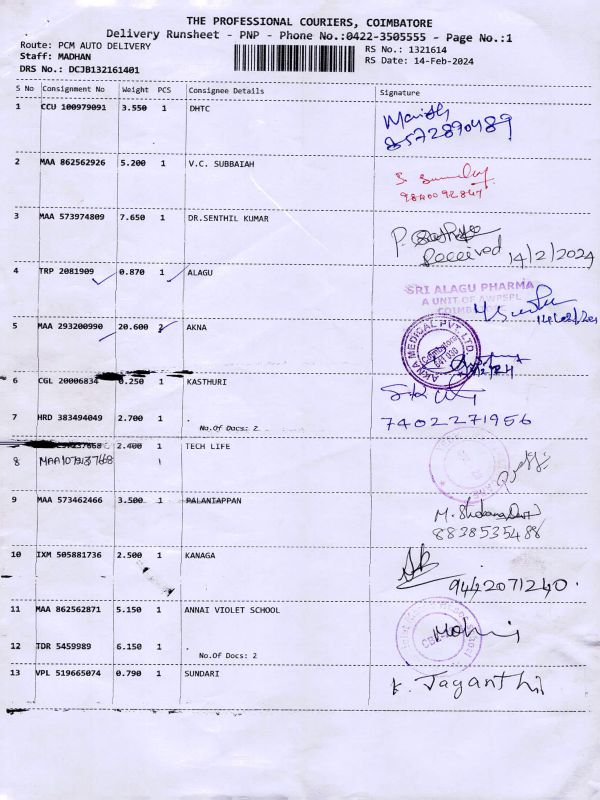 THE PROFESSIONAL COURIERS, COIMBATORE
Delivery Runsheet - PNP - Phone No.:0422-3505555 - Page No.:1
Route: PCM AUTO DELIVERY
RS No.: 1321614
Staff: MADHAN
RS Date: 14-Feb-2024
DRS No.: DCJB132161401
S No Consignment No Weight PCS Consignee Details Signature
1 CCU 100979091 3.550 1 DHTC
8572890489
2 MAA 862562926 5.200 1 V.C. SUBBAIAH
3 MAA 573974809 7.650 1 DR.SENTHIL KUMAR
Received 14/2/2024
4 TRP 2081909 0.870 1 ALAGU
SRI ALAGU PHARMA
A UNIT OF AWPSPL
5 MAA 293200990 20.600 2 AKNA
AKNA MEDICAL PVT. LTD.
6 CGL 20006834 0.250 1 KASTHURI
7402271956
7 HRD 383494049 2.700 1 .
No.Of Docs: 2
2.400 1 TECH LIFE
8 1
9 MAA 573462466 3.500 1 PALANIAPPAN
8838535488
10 IXM 505881736 2.500 1 KANAGA
9442071240.
11 MAA 862562871 5.150 1 ANNAI VIOLET SCHOOL
12 TDR 5459989 6.150 1 .
No.Of Docs: 2
13 VPL 519665074 0.790 1 SUNDARI